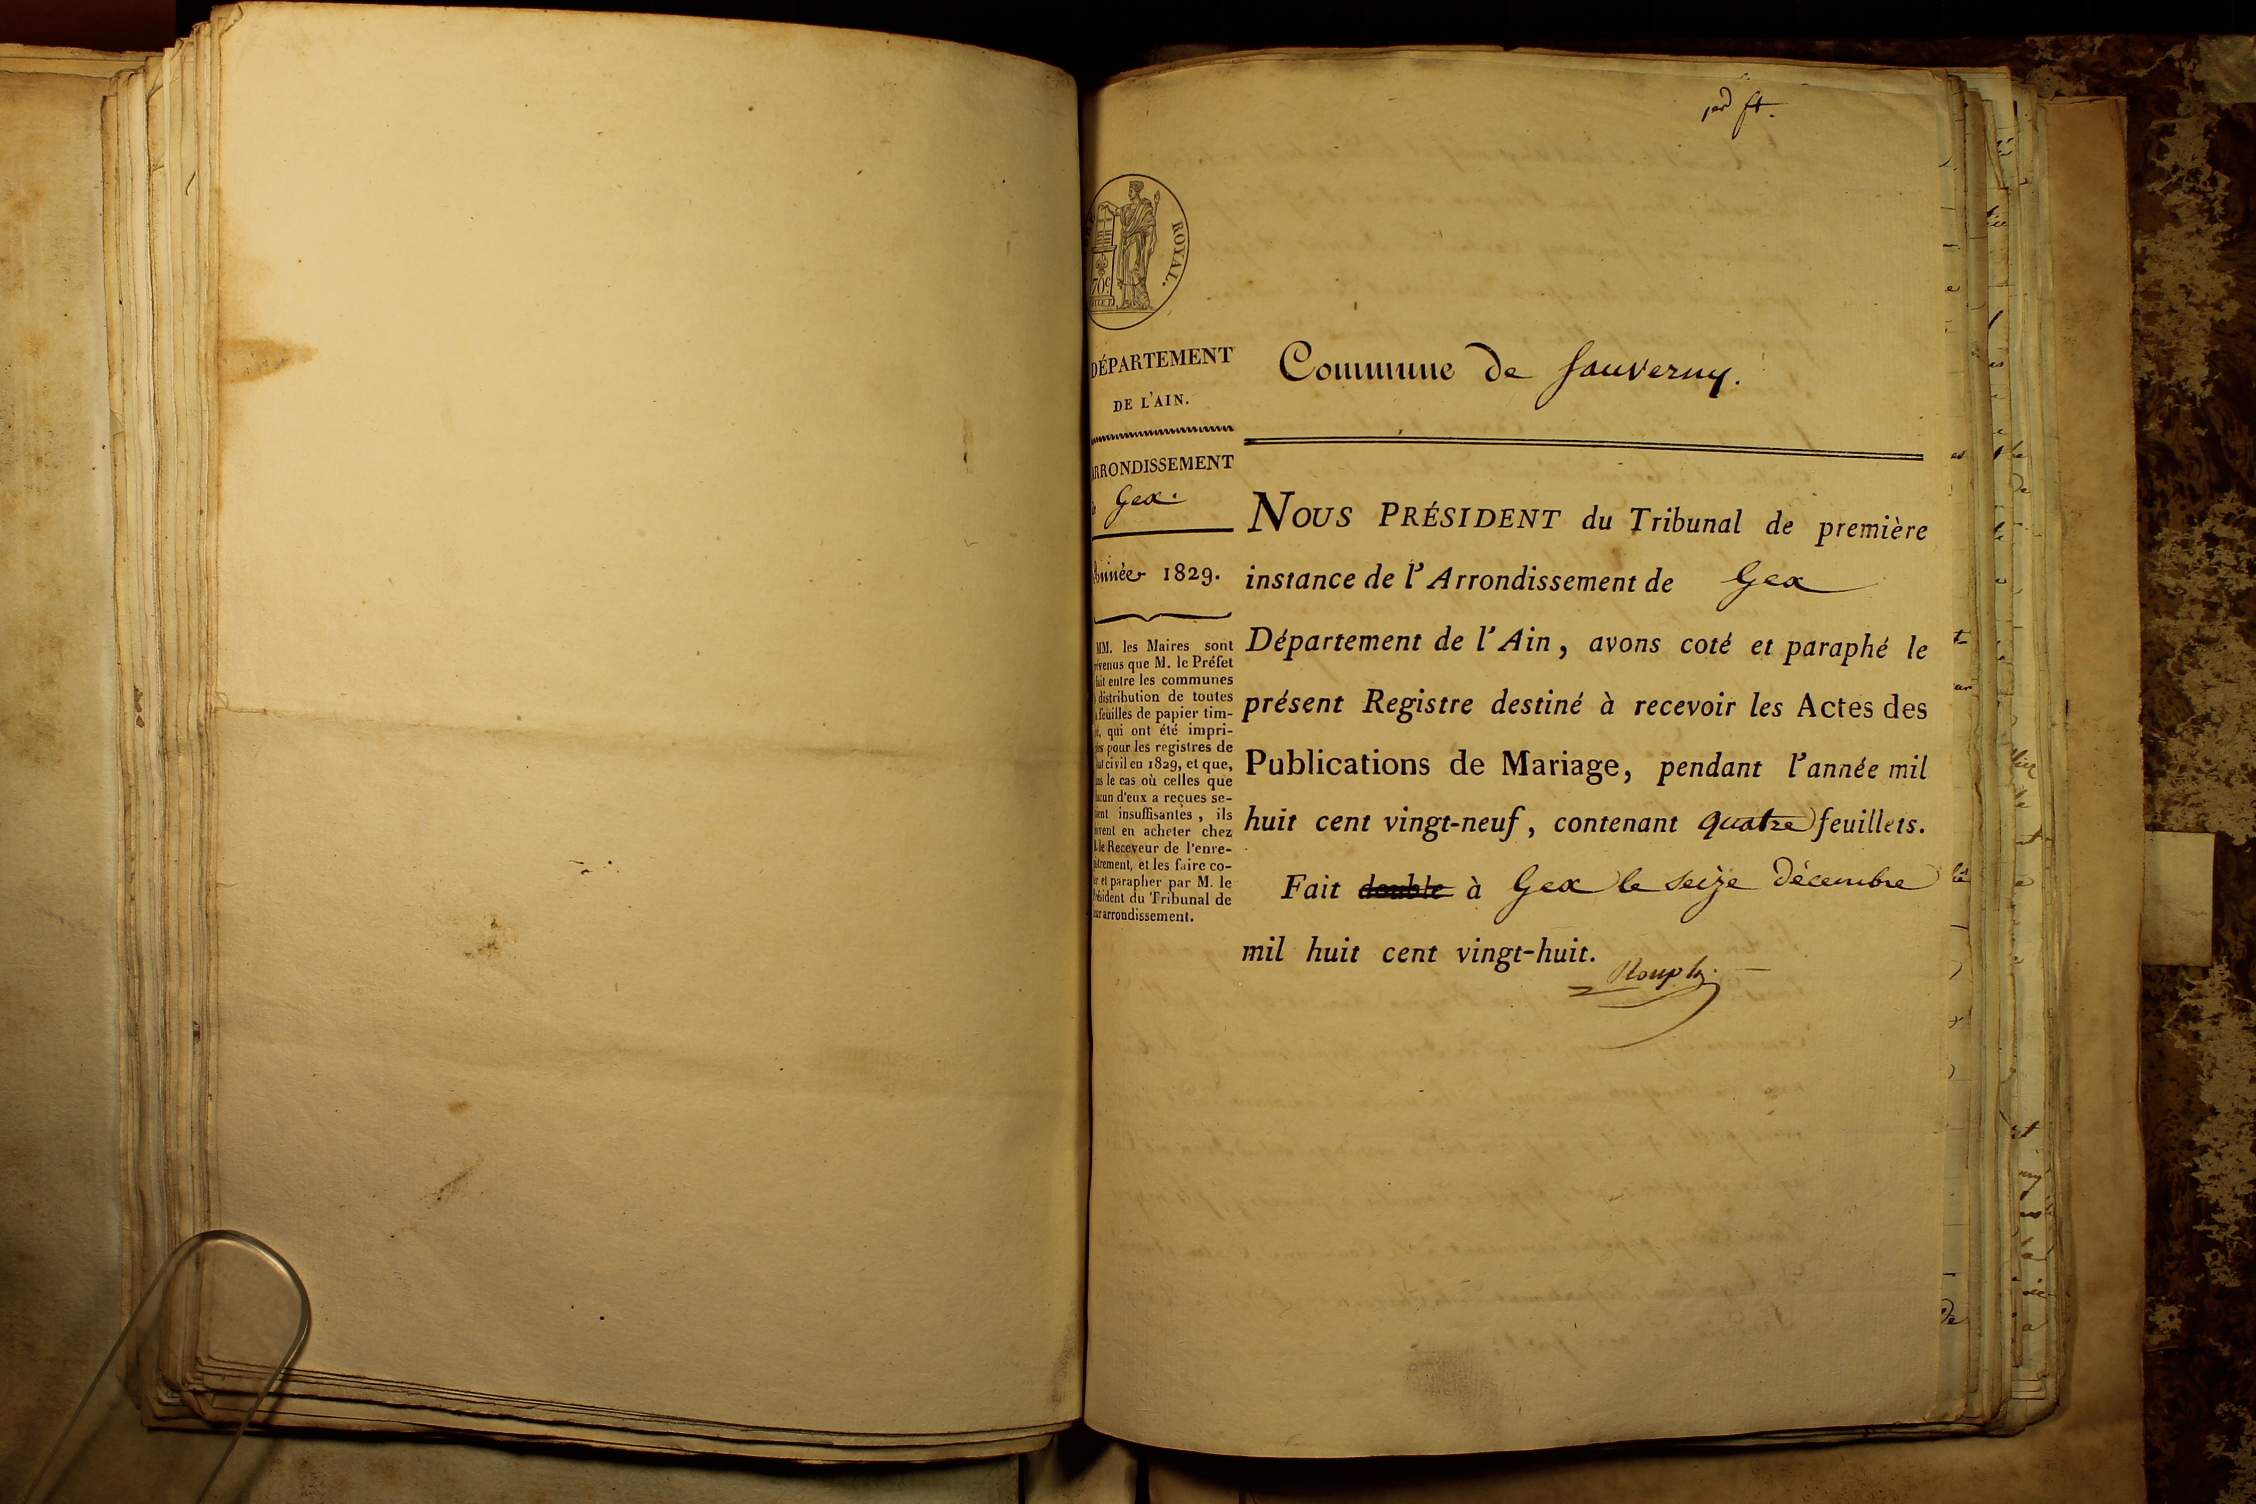 1er ft.
ROYAL.
70c
DÉPARTEMENT
DE L'AIN.
ARRONDISSEMENT
de Gex.
Année 1829.
MM. les Maires sont
prévenus que M. le Préfet
fait entre les communes
la distribution de toutes
les feuilles de papier tim-
bré, qui ont été impri-
mées pour les registres de
l'état civil en 1829, et que,
dans le cas où celles que
chacun d'eux a reçues se-
raient insuffisantes, ils
doivent en acheter chez
M. le Receveur de l'enre-
gistrement, et les faire co-
ter et parapher par M. le
Président du Tribunal de
leur arrondissement.
Commune de Sauverny.
NOUS PRÉSIDENT du Tribunal de première
instance de l'Arrondissement de Gex
Département de l'Ain, avons coté et paraphé le
présent Registre destiné à recevoir les Actes des
Publications de Mariage, pendant l'année mil
huit cent vingt-neuf, contenant quatre feuillets.
Fait double à Gex le seize décembre
mil huit cent vingt-huit.